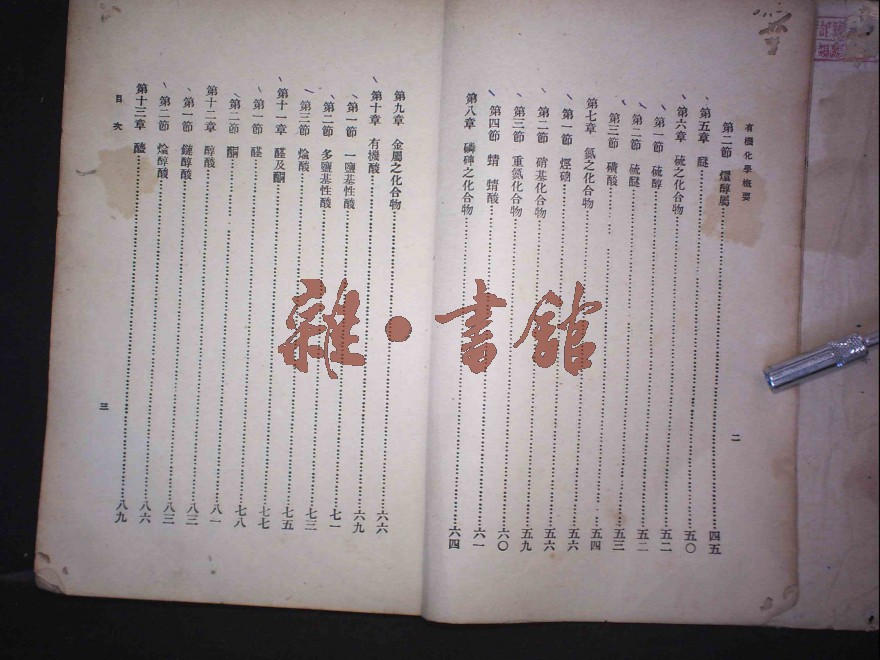 有機化學概要
第二節 爐醇屬 四五
第五章 醚 五〇
第六章 硫之化合物 五二
第一節 硫醇 五二
第二節 硫醚 五三
第三節 磺酸 五四
第七章 氮之化合物 五六
第一節 烴硇 五六
第二節 硝基化合物 五九
第三節 重氮化合物 六〇
第四節 蜻 蜻酸 六一
第八章 磷砷之化合物 六四
二
第九章 金屬之化合物 六六
第十章 有機酸 六九
第一節 一鹽基性酸 七一
第二節 多鹽基性酸 七三
第三節 焓酸 七五
第十一章 醛及酮 七七
第一節 醛 七八
第二節 酮 八一
第十二章 醇酸 八三
第一節 鏈醇酸 八三
第二節 焓醇酸 八六
第十三章 醣 八九
目次
三
雜·書館